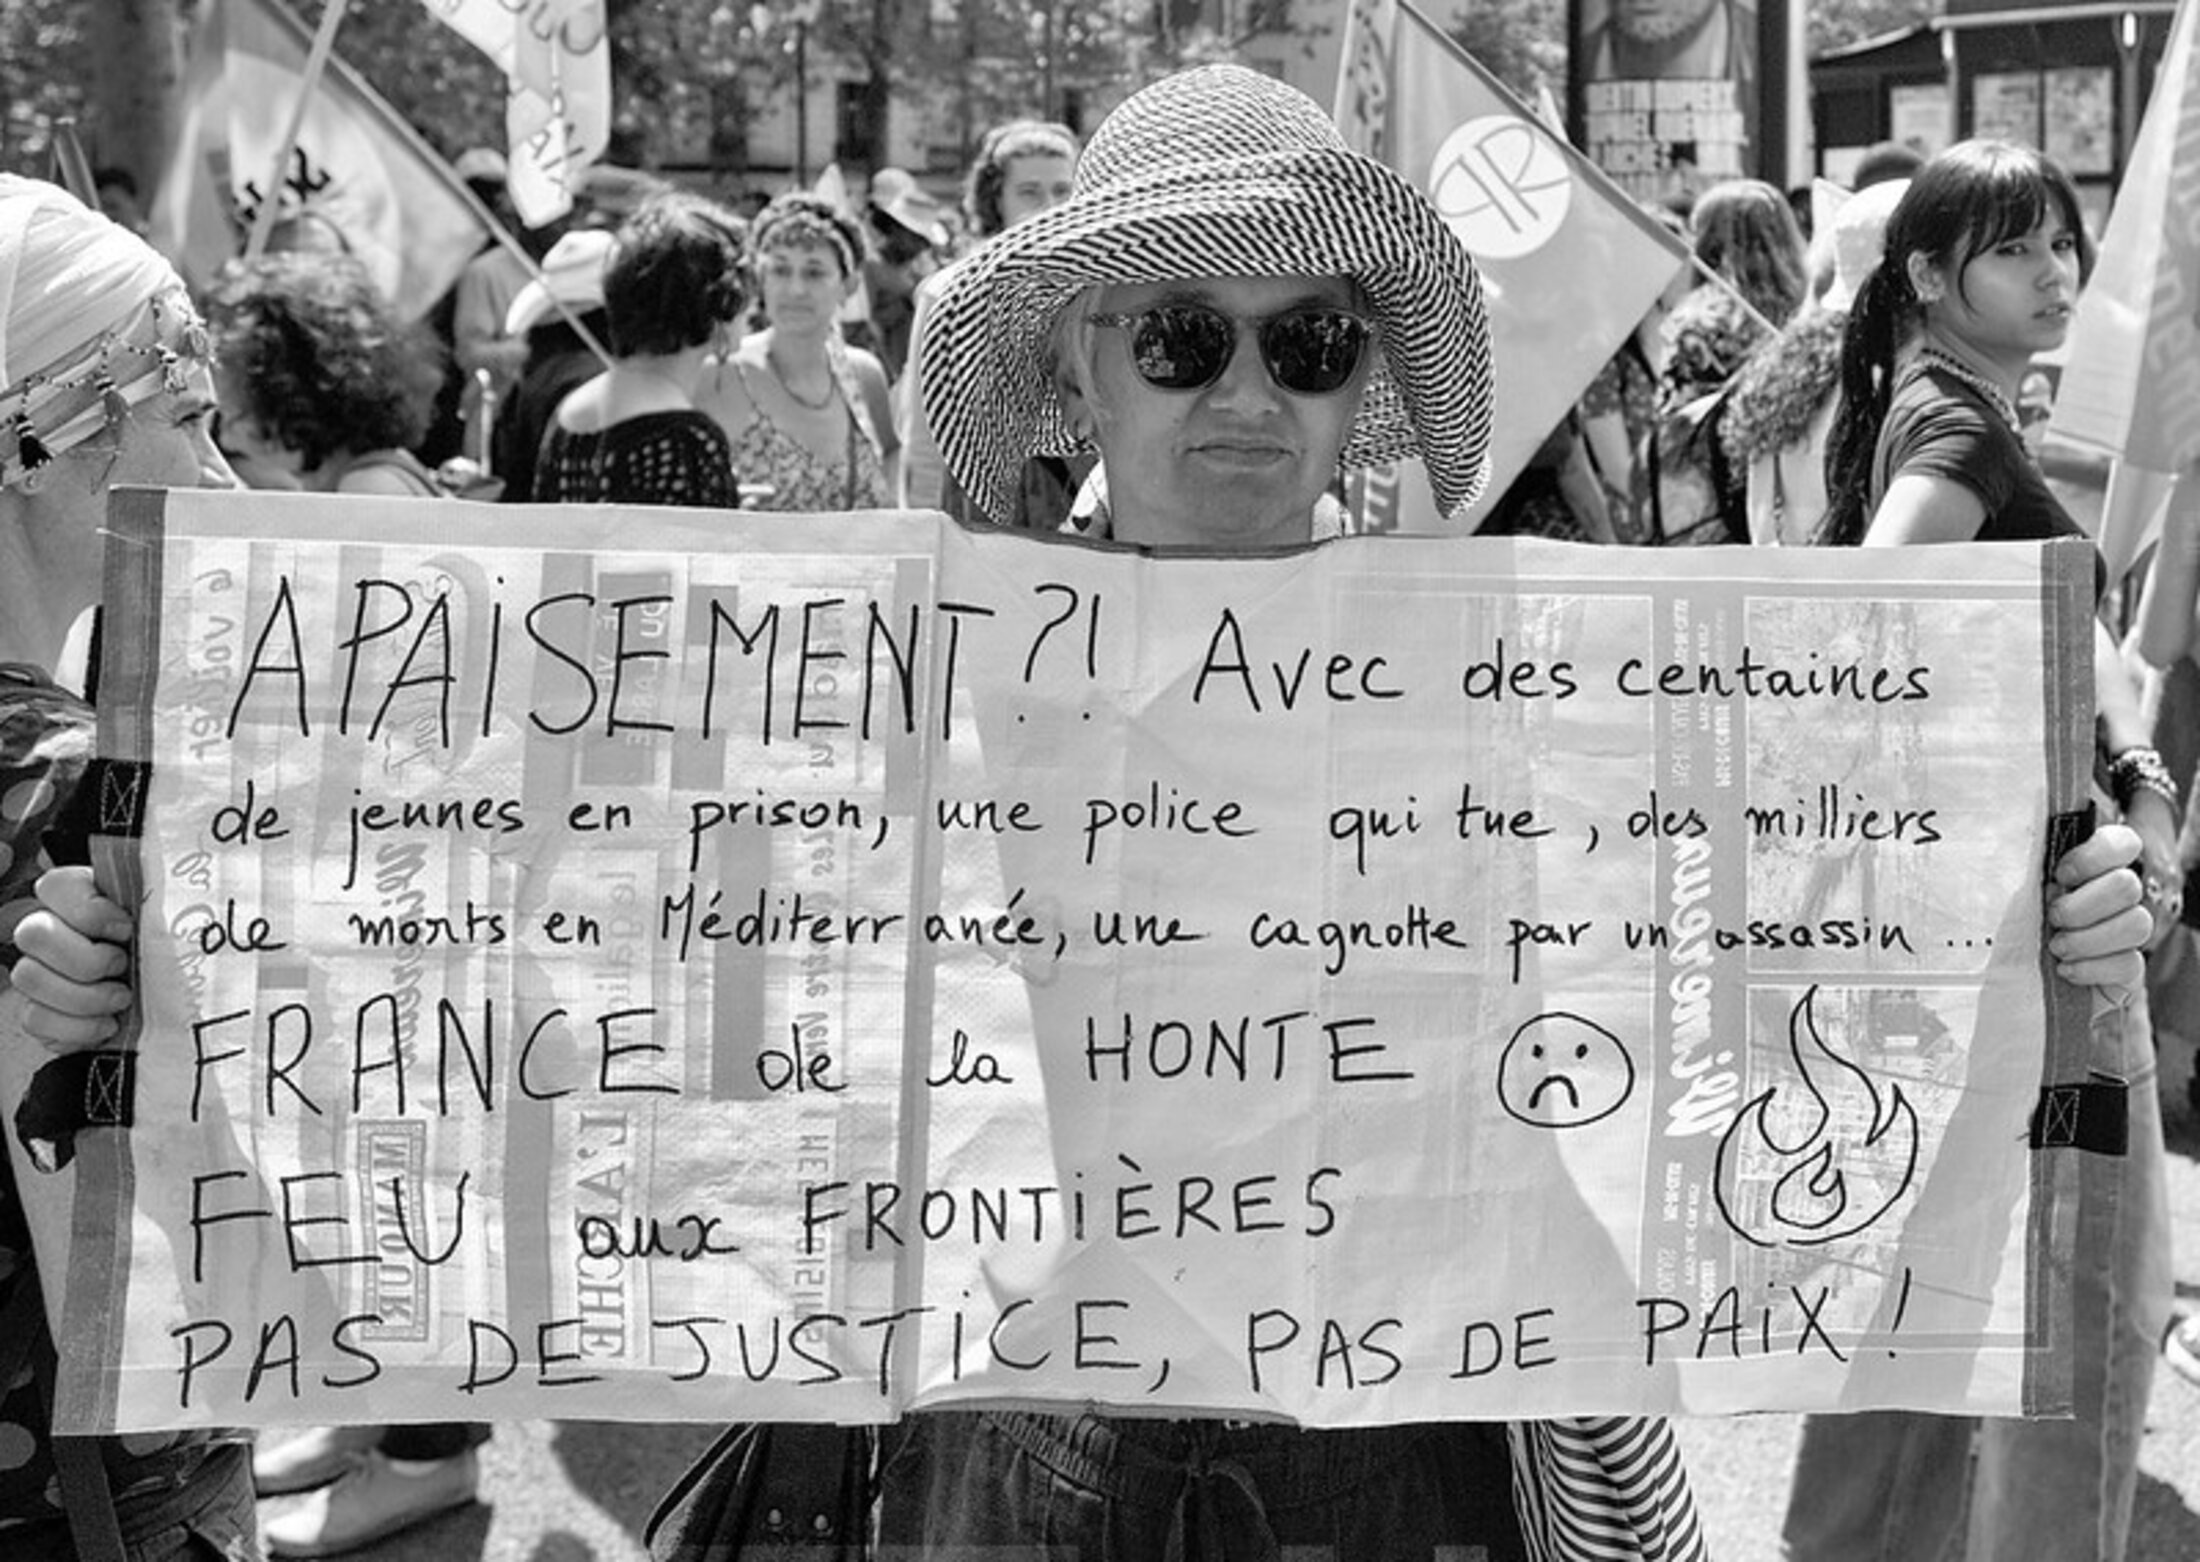 APAiSEMENT ?! Avec des centaines
de jeunes en prison, une police qui tue, des milliers
de morts en Méditerranée, une cagnotte pour un assassin ...
FRANCE de la HONTE
FEU aux FRONTiÈRES
PAS DE JUSTiCE, PAS DE PAiX !